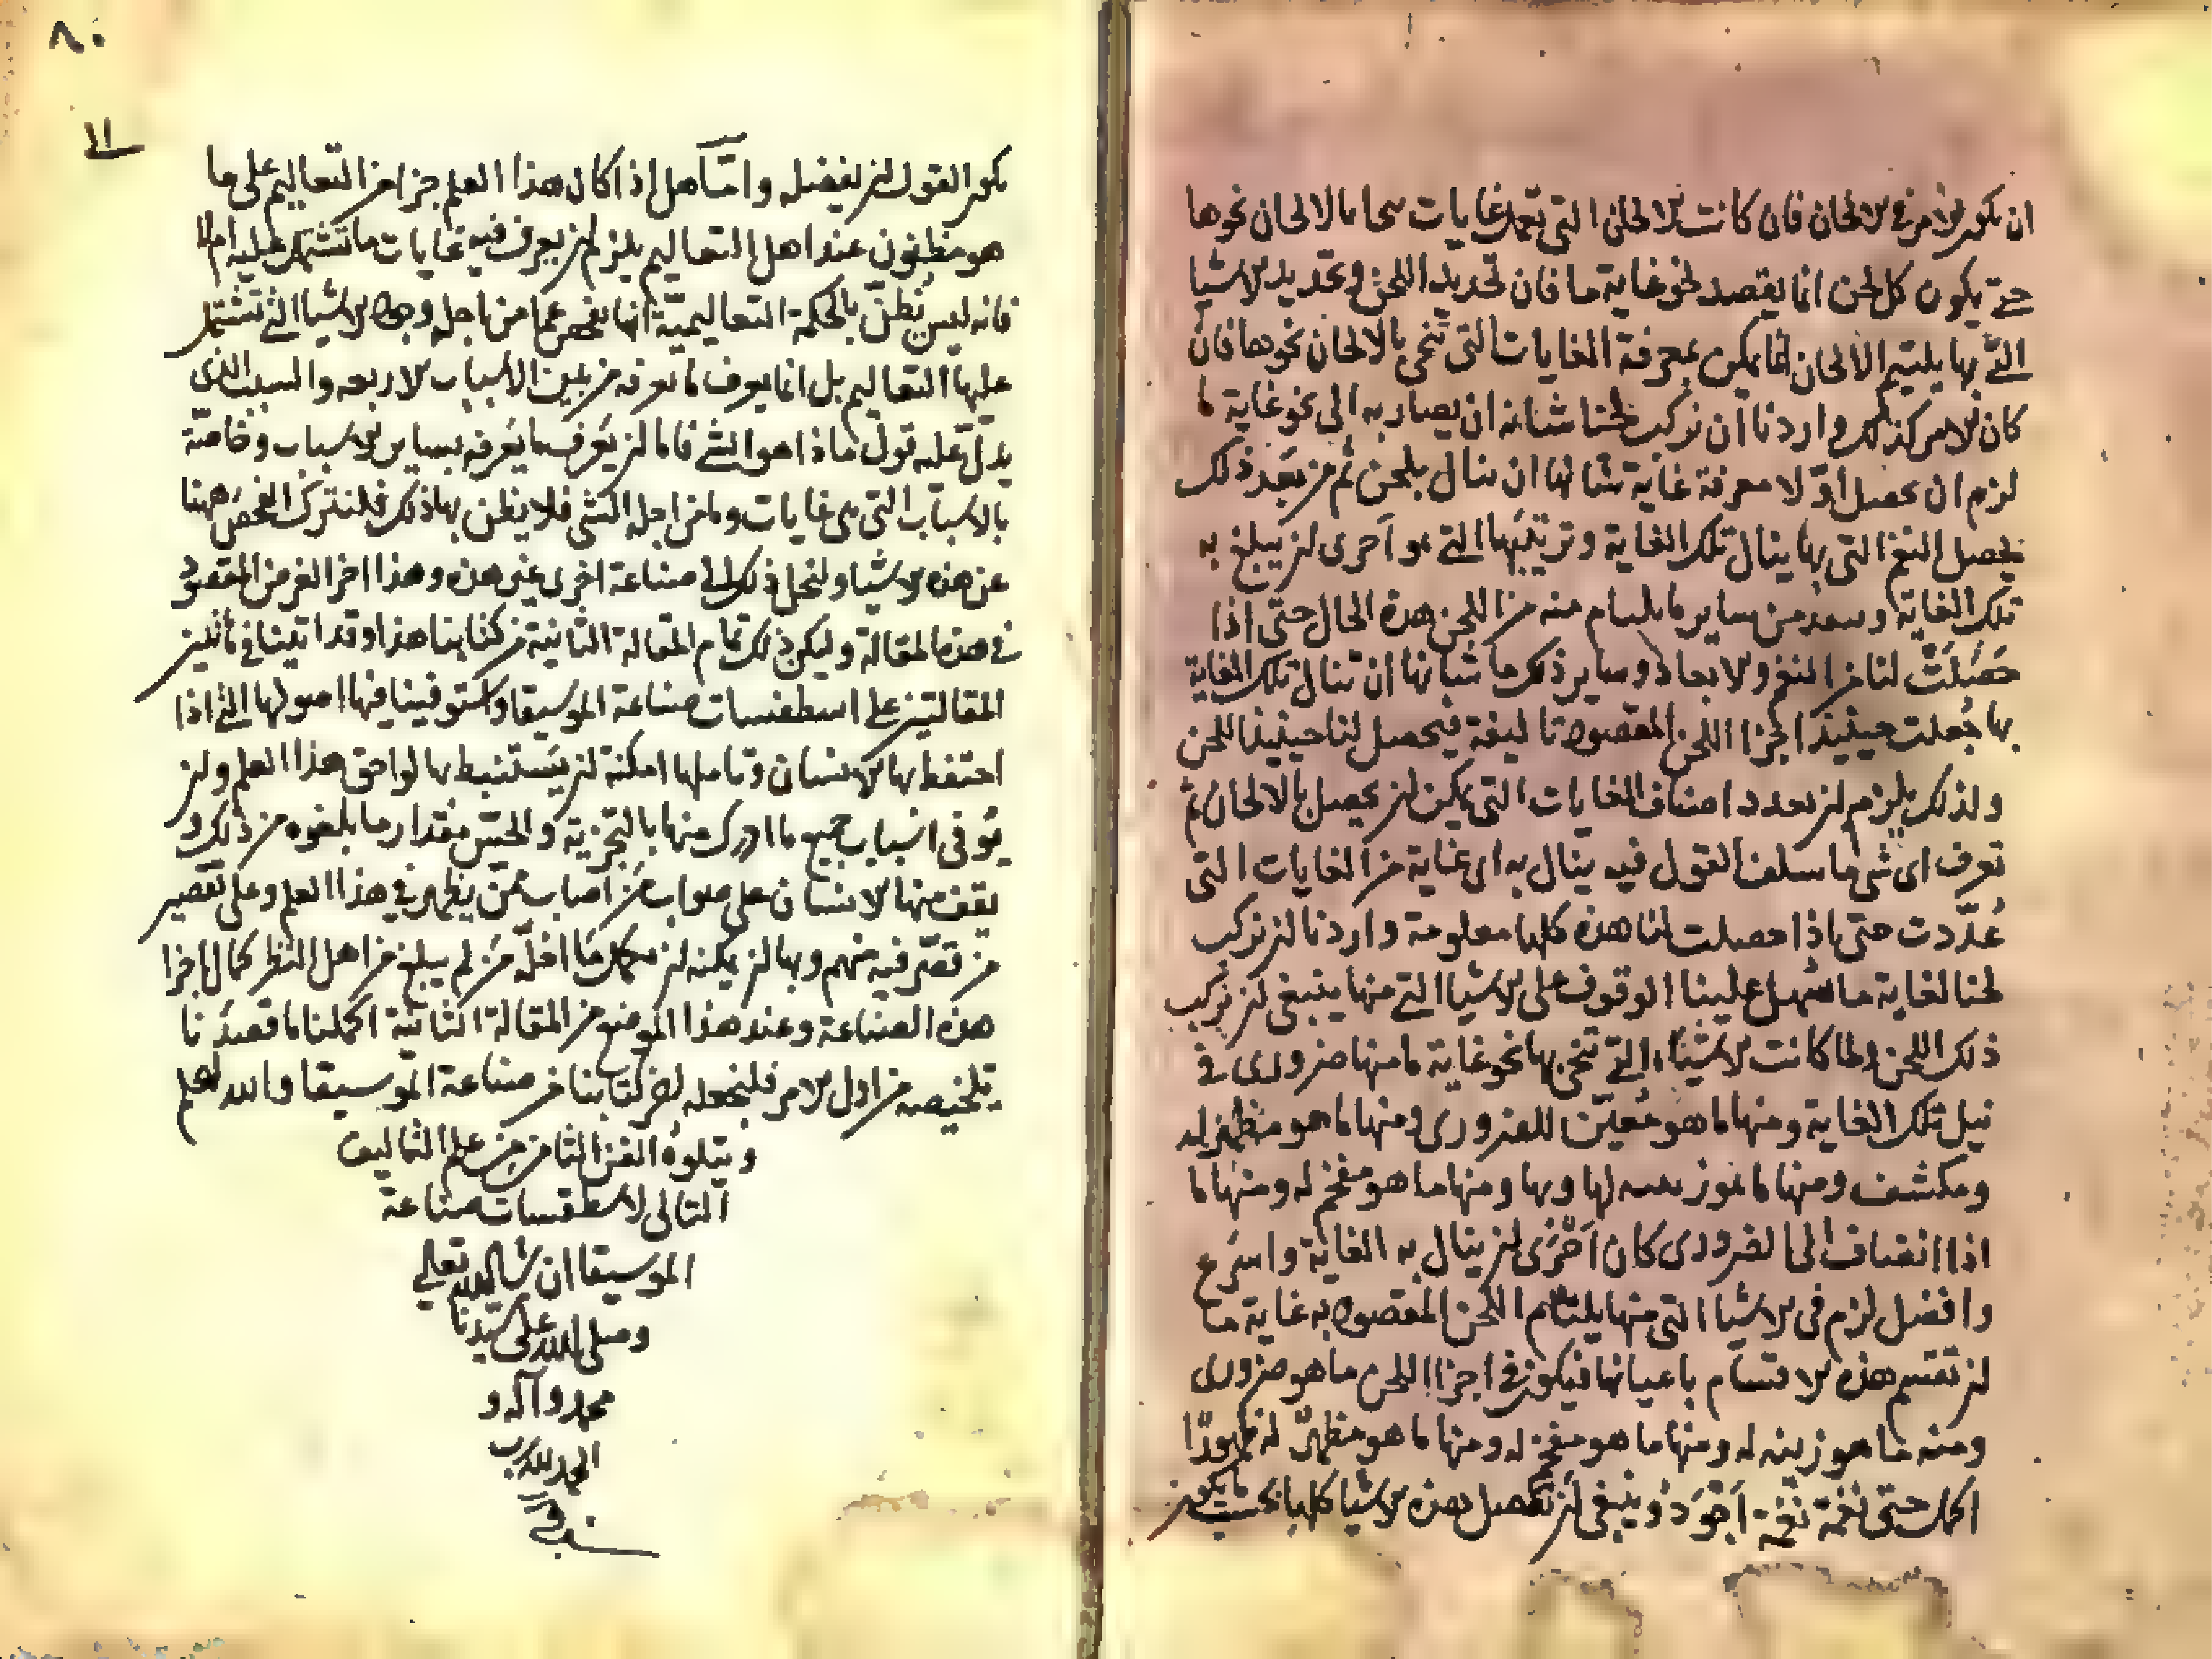 ان يكون الامر في الالحان فان كانت الالحان التي تعمل غايات ينحا بالالحان نحوها
حتى يكون كل لحن انما يقصد نحو غاية ما فان تحديد اللحن وتحديد الاشيا
التي بها يلتيم الالحان انما يمكن بمعرفة الغايات التي تنحى بالالحان نحوها فان
كان الامر كذلك واردنا ان نركب لحنا شانه ان يصار به الى نحو غاية ما
لزم ان يحصل اولا معرفة غاية شانها ان تنال بلحن ثم من بعد ذلك
يحصل النغم التي بها ينال تلك الغاية وترتيبها التي هو احرى ان يبلغ به
تلك الغاية وسعد من ساير ما يلتيام منه من اللحن هذه الحال حتى اذا
حصلت لنا من النغم والابعاد وساير ذلك ما شانها ان تنال تلك الغاية
بها جعلت حينيذ اجزا اللحن المقصود تاليفه فيحصل لنا حينيذ اللحن
ولذلك يلزم ان نعدد اصناف الغايات التي يمكن ان يحصل بالالحان ثم
نعرف اي شي ما سلف القول فيه ينال به اي غاية من الغايات التي
عددت حتى اذا حصلت لنا هذه كلها معلومة واردنا ان نركب
لحنا لغاية ما سهل علينا الوقوف على الاشيا التي منها ينبغي ان نركب
ذلك اللحن ولما كانت الاشياء التي تنحى بها نحو غاية ما منها ضروري في
نيل تلك الغاية ومنها ما هو معين للضروري ومنها ما هو مظهر له
ومكشف ومنها ما هو زينه لها وبها ومنها ما هو مفخم له ومنها ما
اذا انضاف الى الضروري كان احرى ان ينال به الغاية واسرع
وافضل لزم في الاشيا التي منها يلتام اللحن المقصود به غاية ما
ان تقسم هذه الاقسام باعيانها فيكون في اجزا اللحن ما هو ضروري
ومنه ما هو زينه له ومنها ما هو مفخم له ومنها ما هو مظهر له ظهورا
اكمل حتى نغمة نغمة اجود وينبغي ان تحصل هذه الاشيا كلها بحسب ما يكون
٨٠
يكون القول ان يفضله وامّا هل اذا كان هذا العلم جزا من التعاليم على ما
هو مظنون عند اهل التعاليم يلزم ان يعرف فيه غايات ما تشتمل عليه ام لا
فانه ليس يُظن بالحكمة التعاليمية انها يفحص عما من اجله وجود الاشيا التي تشتمل
عليها التعاليم بل انما يعرف ما تعرفه من بين الاسباب الاربعه والسبب الذي
يدل عليه قول ماذا هو الشي فاما ان يعرف ما يعرفه بساير الاسباب وخاصة
بالاسباب التي هي غايات وما من اجله الشي فلا يظن بها ذلك فلنترك الفحص ههنا
عن هذه الاشيا ولنحل ذلك الى صناعة اخرى غير هذه وهذا اخر الغرض المقصود
في هذه المقالة وليكن ذلك تمام المقالة الثانية من كتابنا هذا وقد اتينا في هاتين
المقالتين على اسطقسات صناعة الموسيقا واستوفينا فيها اصولها التي اذا
احتفظ بها الانسان وتاملها امكنه ان يستنبط بها لواحق هذا العلم وان
يوفى اسباب جميع ما ادرك منها بالتجربة والحس مقدار ما بلغوه من ذلك و
يقف منها الانسان على صواب من اصاب ممن ينظر في هذا العلم وعلى تقصير
من قصّر فيه منهم وبها ان يمكنه ان يكمل ما اخلّ من لم يبلغ من اهل النظر كمال اجزا
هذه الصناعة وعند هذا الموضع من المقالة الثانية اكملنا ما قصدنا
تلخيصه من اول الامر فلنجعله اخر كتابنا من صناعة الموسيقا والله اعلم
ويتلوه الفن الثامن من علم التاليف
التالي لاسطقسات صناعة
الموسيقا ان شا الله تعالى
وصلى الله على سيدنا
محمد وآله و
الحمد لله رب